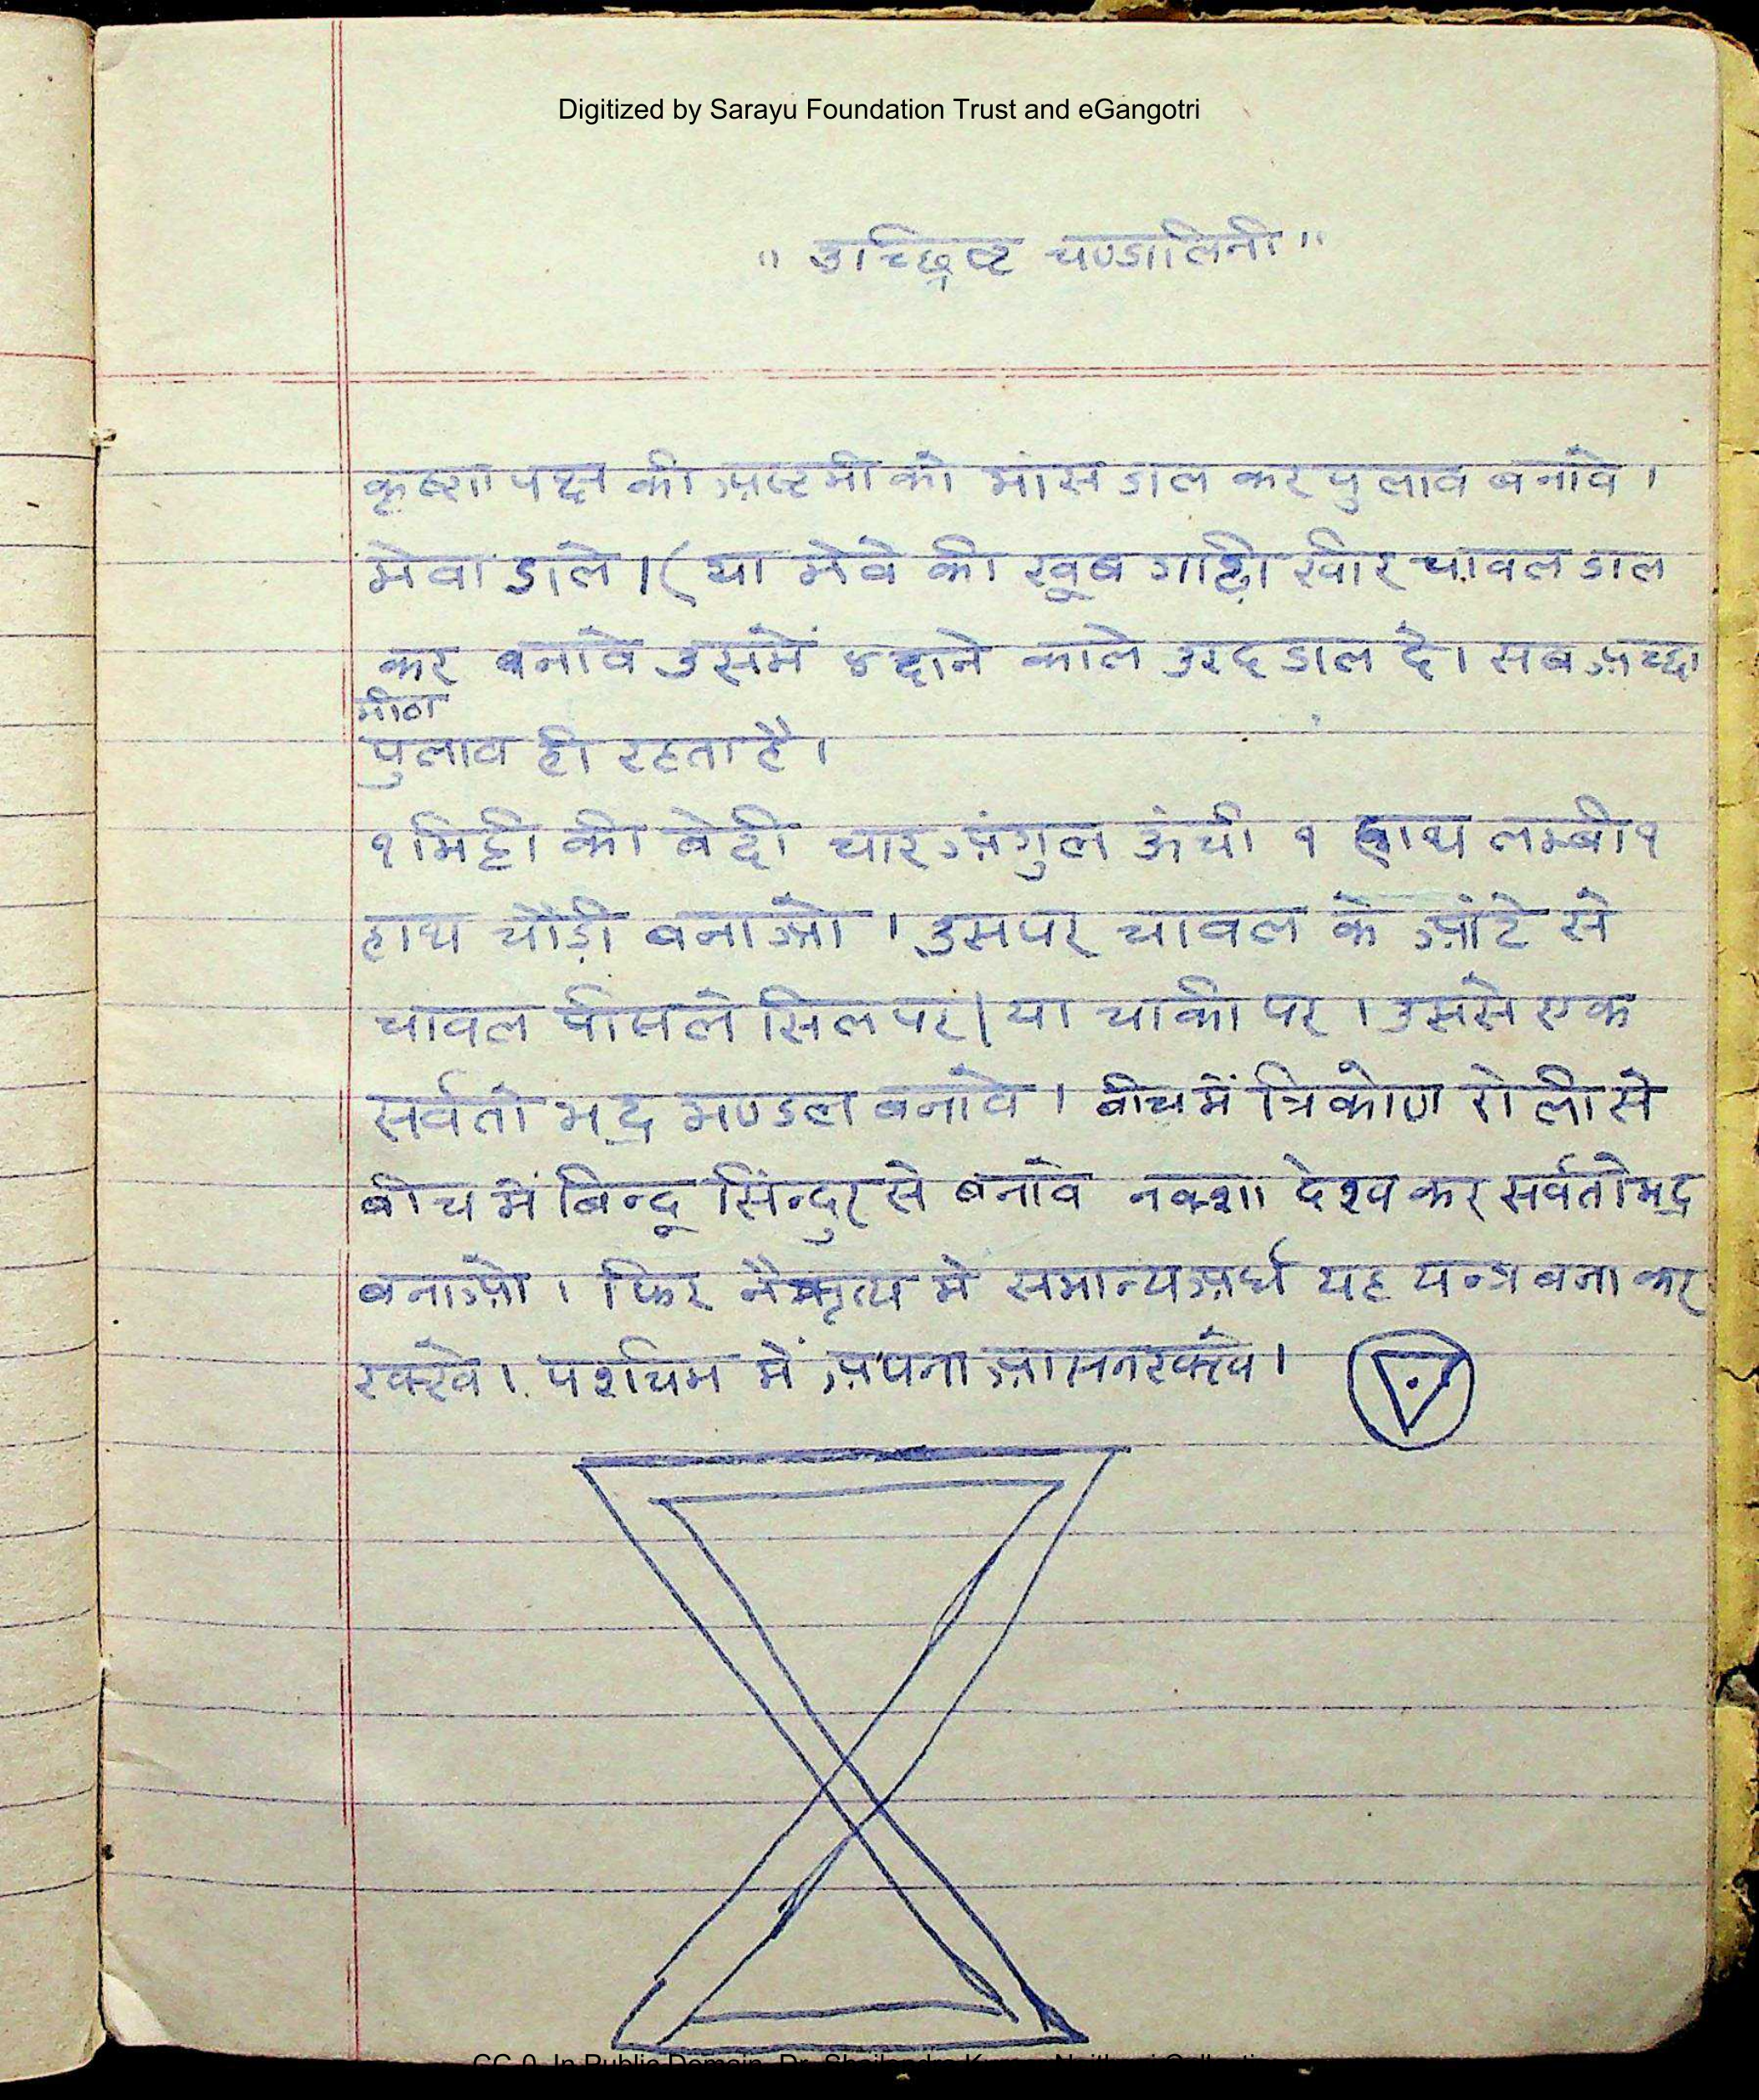 Digitized by Sarayu Foundation Trust and eGangotri
" उच्छिष्ट चण्डालिनी "
कृष्ण पक्ष की अष्टमी को मांस डाल कर पुलाव बनावे ।
मेवा डाले । ( या मेवे की खूब गाढ़ी खीर चावल डाल
कर बनावे उसमें दाने काले उरद डाल दे । सब अच्छा
मीठा
पुलाव ही रहता है ।
१ मिट्टी की बेदी चार अंगुल ऊंची १ हाथ लम्बी १
हाथ चौड़ी बनाओ । उसपर चावल के आंटे से
चावल पीसले सिल पर | या चाकी पर । उससे एक
सर्वतो भद्र मण्डल बनावे । बीच में त्रिकोण रोली से
बीच में बिन्दू सिंन्दुर से बनावे नक्शा देख कर सर्वतोभद्र
बनाओ । फिर नैऋत्य मे समान्य अर्घ यह यन्त्र बना कर
रक्खे । पश्चिम में अपना आसन रक्खे ।
CC-0. In Public Domain. Dr. Shailendra Kumar Naithani Collection